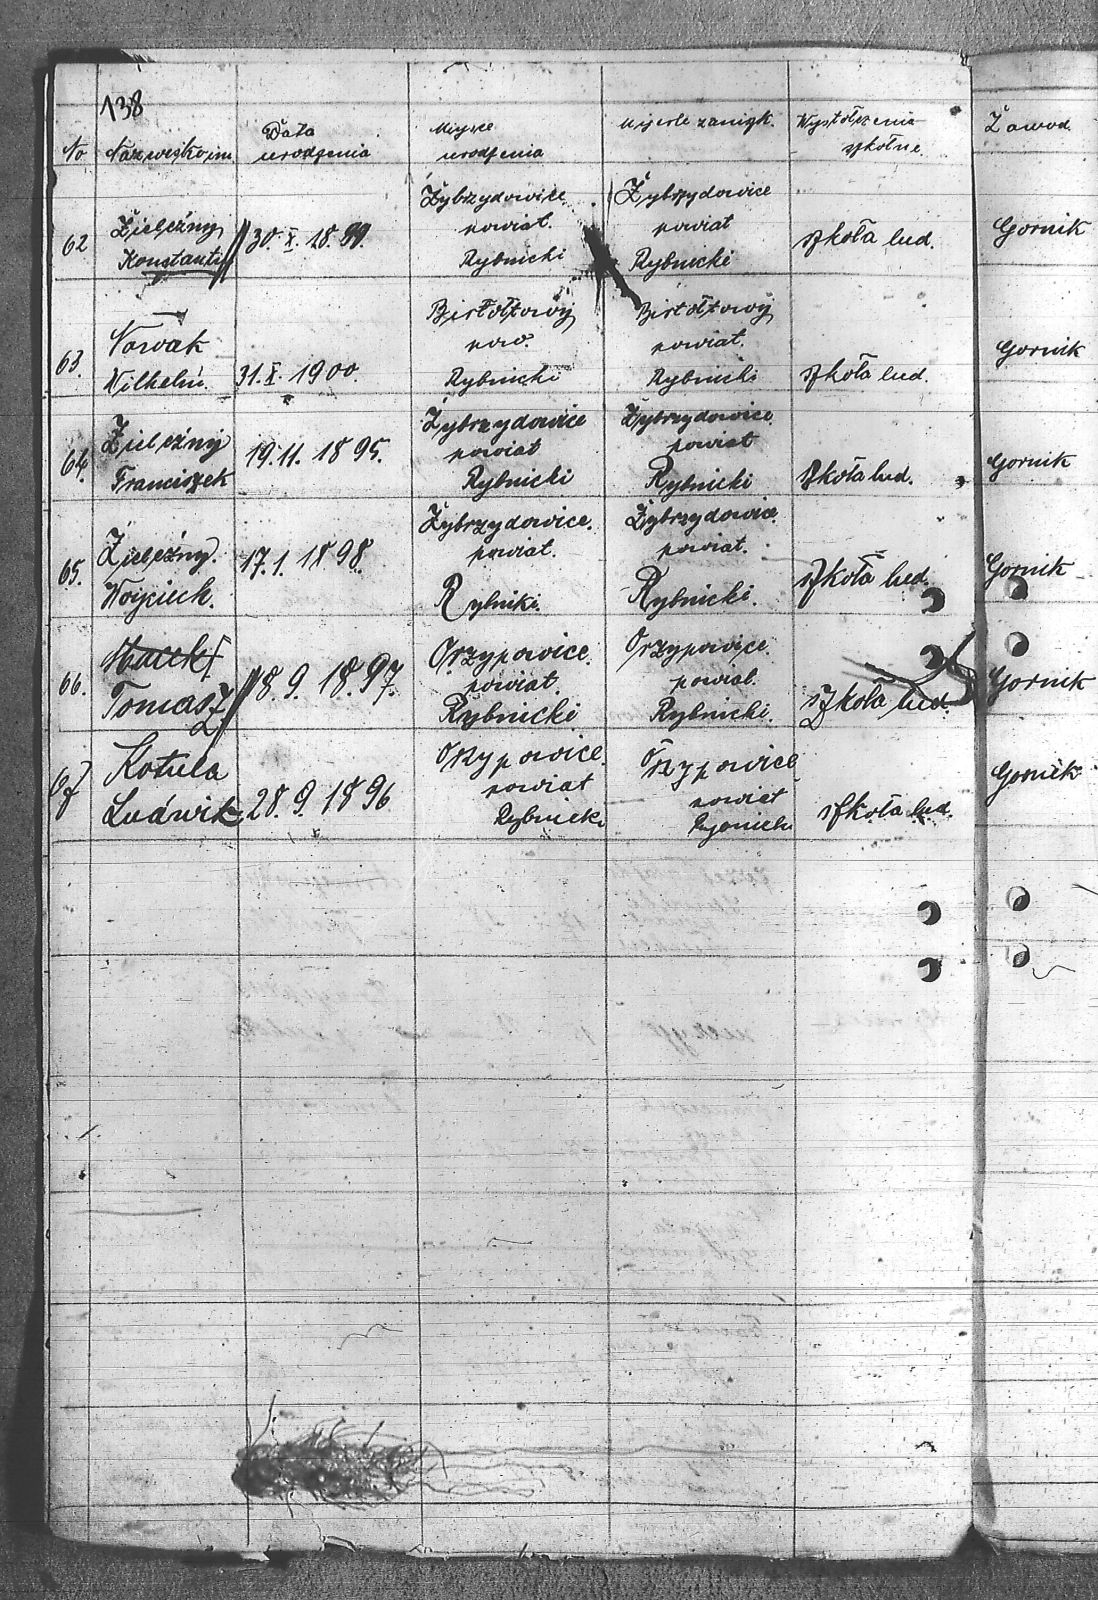 138
No Nazwisko im. Data urodzenia Miejsce urodzenia Miejsce zamięk. Wyksłżcenia szkolne. Zawod.
62 Zielezny Konstanti 30. X. 18.99. Żybrzydowice powiat. Rybnicki Żybrzydowice powiat Rybnicki szkoła lud. Gornik
63. Nowak Wilhelm. 31. X. 1900. pow. Rybnicki powiat. Rybnicki szkoła lud. Gornik
64. Zielezny Franciszek 19.11. 1895. Żybrzydowice powiat Rybnicki Żybrzydowice powiat Rybnicki szkoła lud. Gornik
65. Zielezny. Wojciech. 17.1. 1898. Żybrzydowice. powiat. Rybniki. Żybrzydowice. powiat. Rybnicki. szkoła lud. Gornik
66. Tomasz 18.9. 18.97. Orzypowice. powiat. Rybnicki Orzypowice. powiat. Rybnicki. szkoła lud. Gornik
67 Kotula Ludwik 28.9. 1896 Orzypowice powiat Rybnicki Orzypowice powiat szkoła lud. Gornik